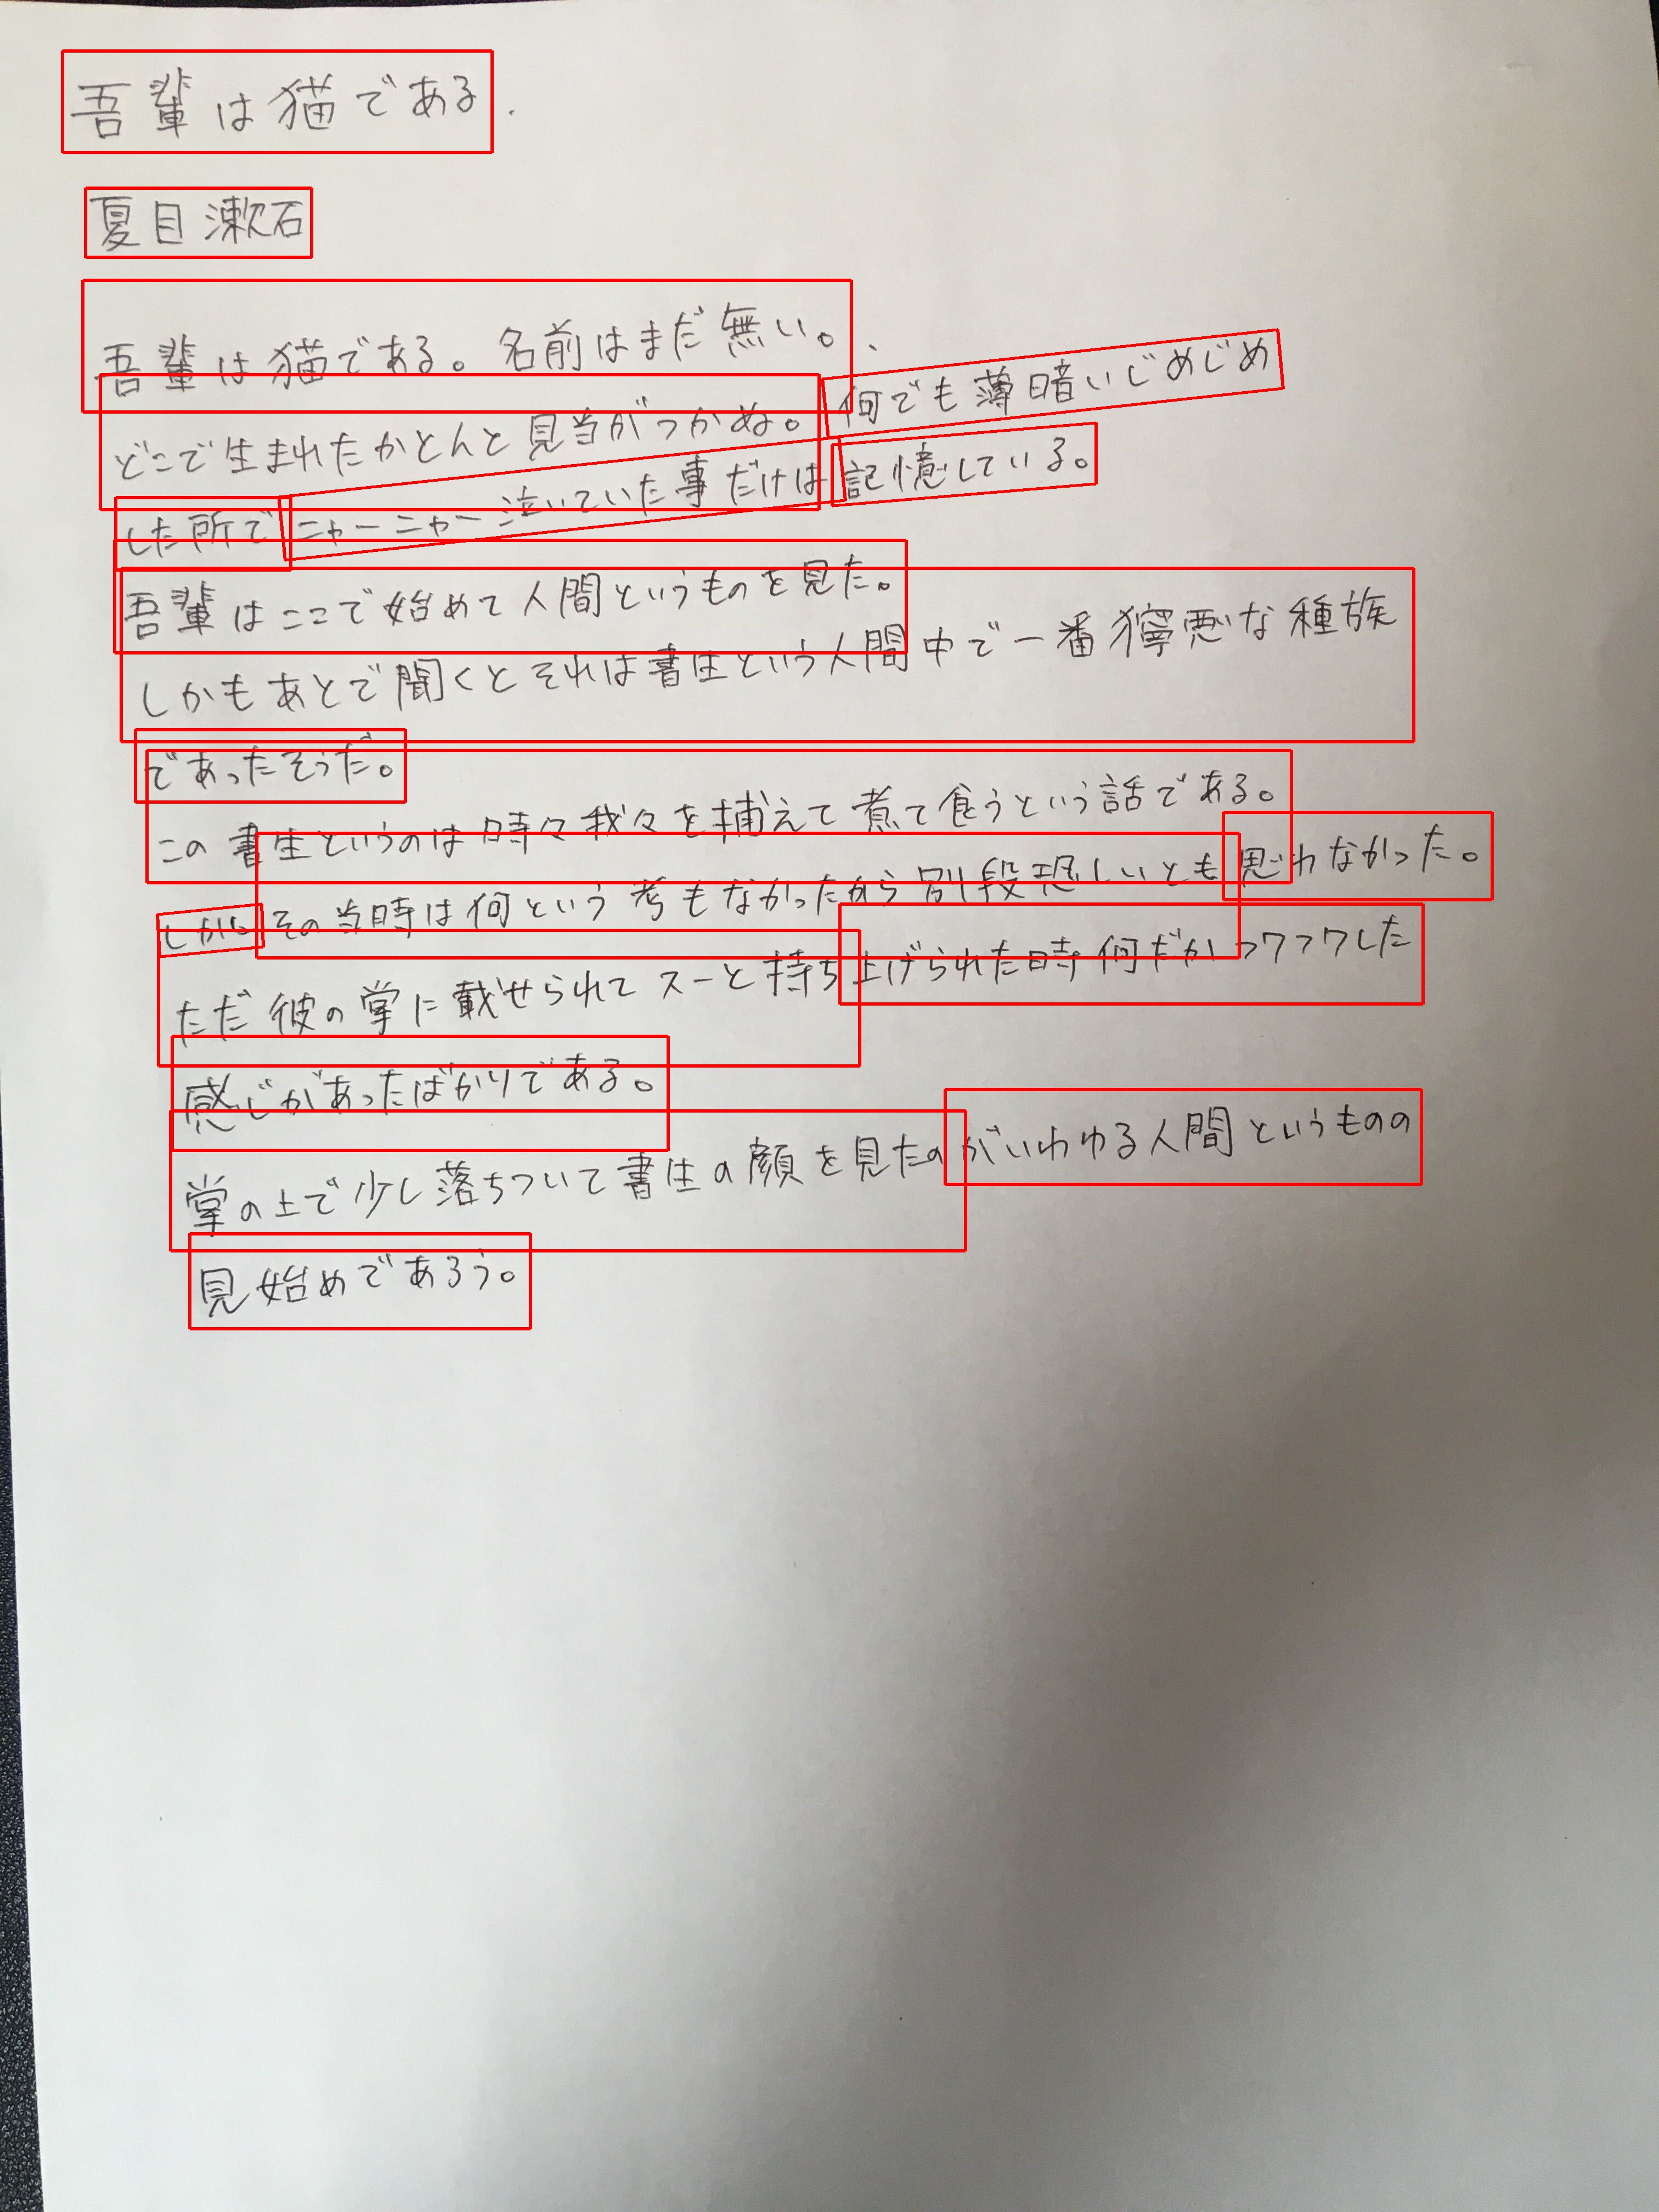 吾輩は猫である
夏目漱石
吾輩は猫である。名前はまだ無い。
どこで生まれたかとんと見当がつかぬ。何でも薄暗いじめじめ
した所でニャーニャー泣いていた事だけは記憶している。
吾輩はここで始めて人間というものを見た。
しかもあとで聞くとそれは書生という人間中で一番獰悪な種族
であったそうだ。
この書生というのは時々我々を捕えて煮て食うという話である。
しかしその当時は何という考もなかったから別段恐しいとも思わなかった。
ただ彼の掌に載せられてスーと持ち上げられた時何だかフワフワした
感じがあったばかりである。
掌の上で少し落ちついて書生の顔を見たのがいわゆる人間というものの
見始めであろう。